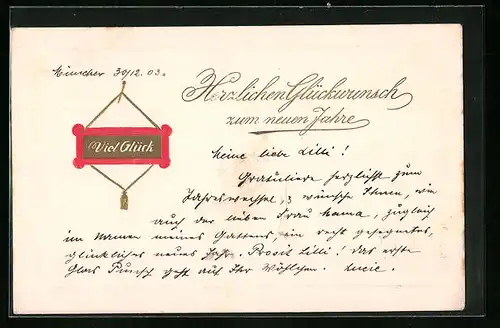 München 30/12. 03.
Herzlichen Glückwunsch
zum neuen Jahre
Viel Glück
Meine liebe Lilli!
Gratuliere herzlichst zum
Jahreswechsel, & wünsche Ihnen, wie
auch der lieben Frau Mama, zugleich
im Namen meines Gatten, ein recht gesegnetes,
glückliches neues Jahr. Prosit Lilli! Das erste
Glas Punsch geht auf Ihr Wohl. Lucie.